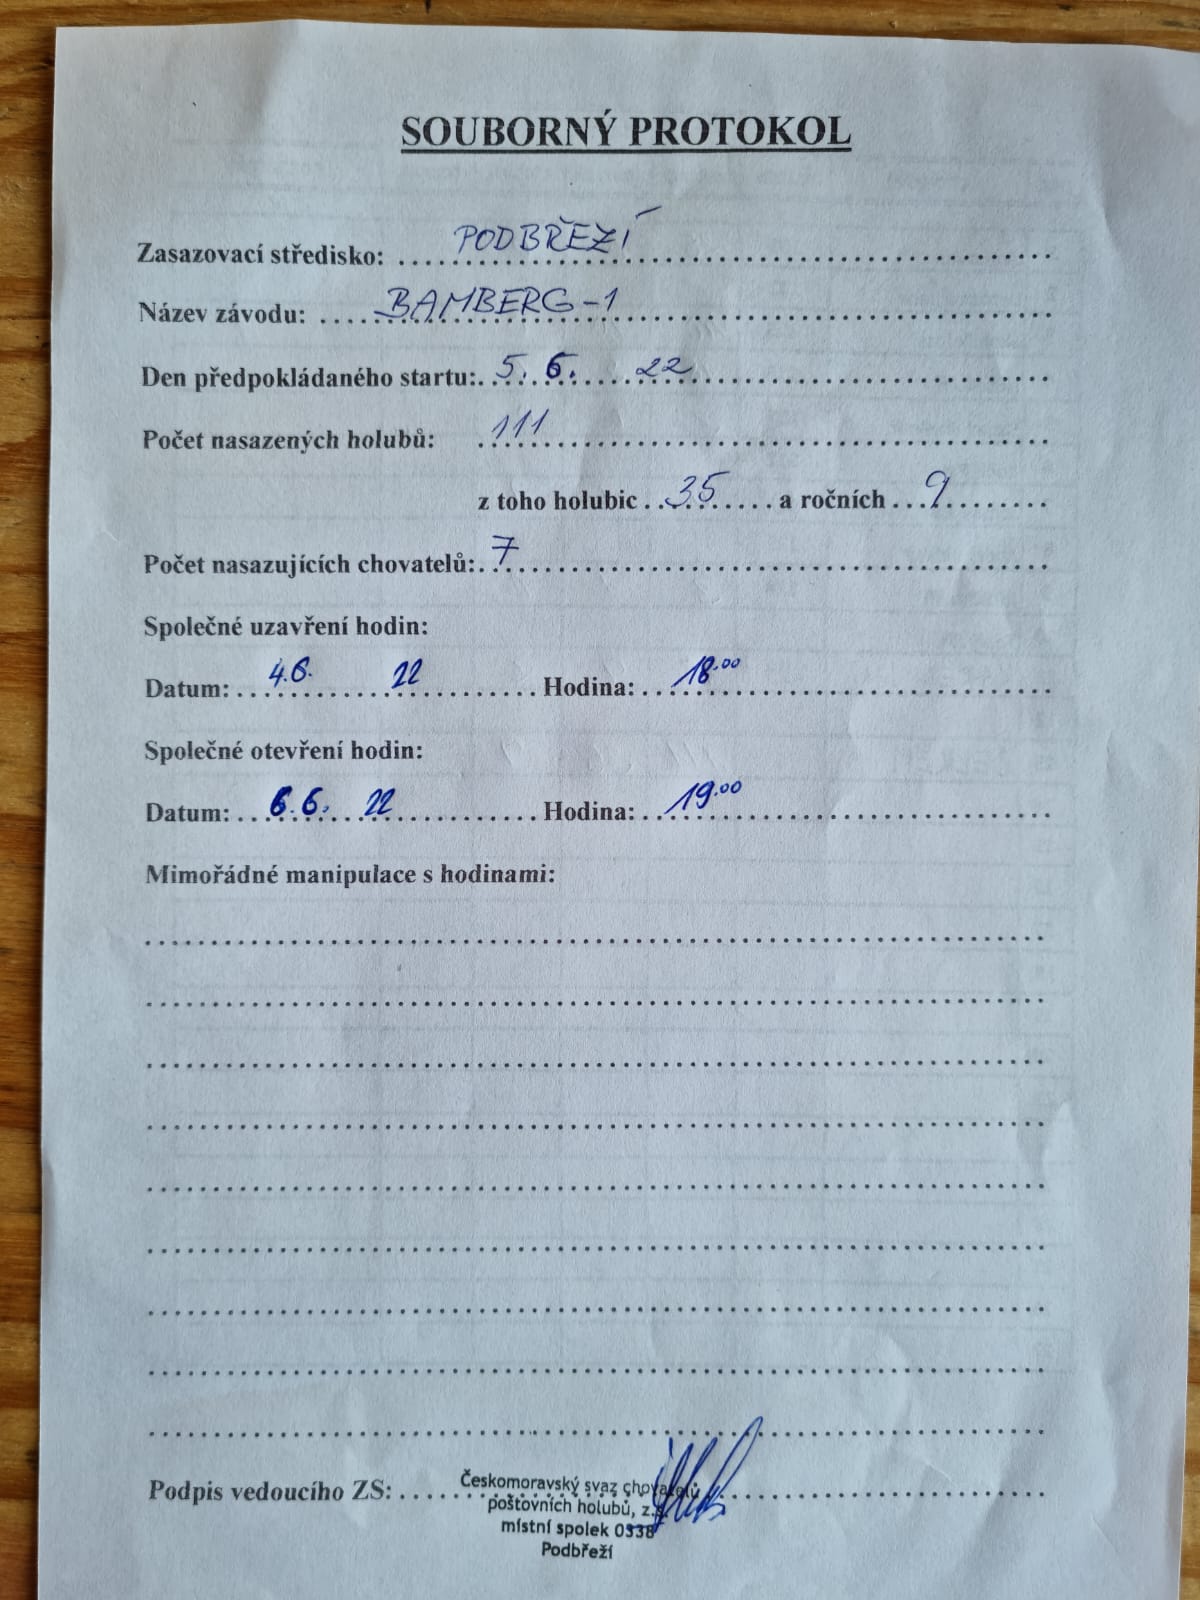 SOUBORNÝ PROTOKOL
Zasazovací středisko: PODBŘEZÍ
Název závodu: BAMBERG-1
Den předpokládaného startu: 5. 6. 22
Počet nasazených holubů: 111
z toho holubic 35 a ročních 9
Počet nasazujících chovatelů: 7
Společné uzavření hodin:
Datum: 4.6. 22 Hodina: 18.00
Společné otevření hodin:
Datum: 6.6. 22 Hodina: 19.00
Mimořádné manipulace s hodinami:
Podpis vedoucího ZS:
Českomoravský svaz chovatelů
poštovních holubů, z.s.
místní spolek 0338
Podbřeží